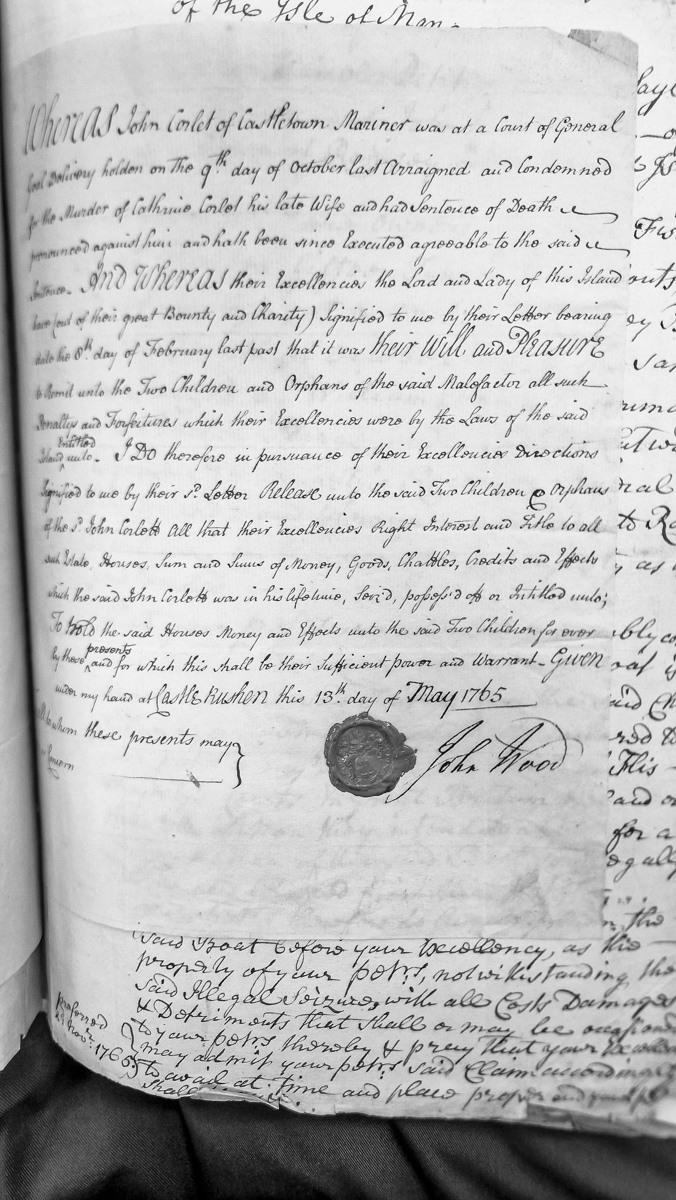 of the Isle of Man.
Whereas John Corlet of Castletown Mariner was at a Court of General
Goal Delivery holden on the 9th day of October last Arraigned and Condemned
for the Murder of Cathrine Corlet his late Wife and had Sentence of Death
pronounced against him and hath been since Executed agreeable to the said
Sentence. And Whereas their Excellencies the Lord and Lady of this Island
have (out of their great Bounty and Charity) Signified to me by their Letter bearing
date the 8th day of February last past that it was their Will and Pleasure
to Remit unto the Two Children and Orphans of the said Malefactor all such
Penaltys and Forfeitures which their Excellencies were by the Laws of the said
Entitled
Island unto. I Do therefore in pursuance of their Excellencies Directions
Signified to me by their sd. Letter Release unto the said Two Children & Orphans
of the sd. John Corlett All that their Excellencies Right Interest and Title to all
such Estate, Houses, Sum and Sums of Money, Goods, Chattles, Credits and Effects
which the said John Corlett was in his lifetime, Seiz'd, possess'd off or Intitled unto;
To hold the said Houses Money and Effects unto the said Two Children for ever
presents
by these and for which this shall be their Sufficient power and Warrant - Given
under my hand at Castle Rushen this 13th. day of May 1765.
whom these presents may
Concern
John Wood
said Boat before your Excellency, as the
property of your petrs., notwithstanding the
said Illegal Seizure, with all Costs Damages
& Detriments that shall or may be
to your petrs. thereby & pray that your
may admit your petrs. said Claim
to avail at time and place proper and
shall
preferred
Novr. 1765